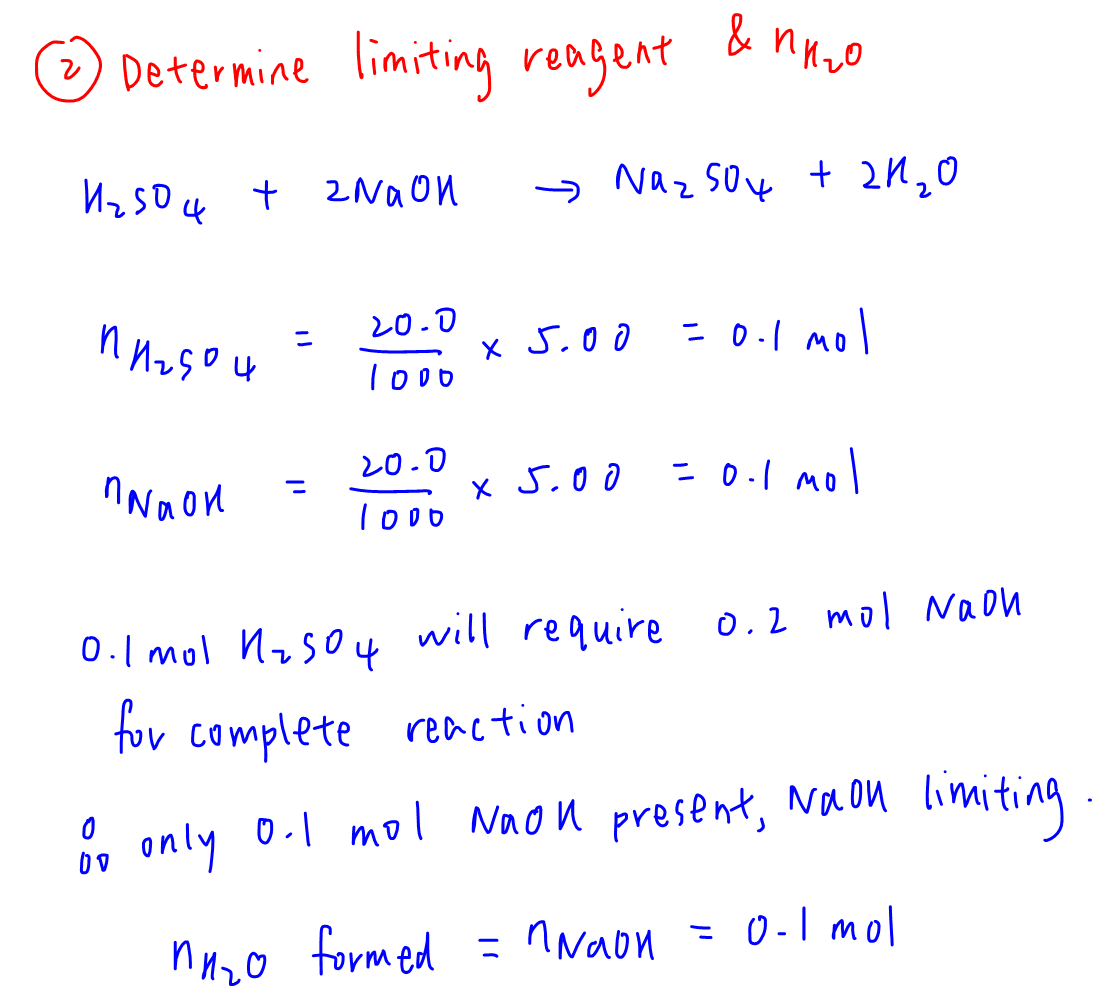 ② Determine limiting reagent & nH₂O
H₂SO₄ + 2NaOH → Na₂SO₄ + 2H₂O
nH₂SO₄ = 20.0/1000 × 5.00 = 0.1 mol
nNaOH = 20.0/1000 × 5.00 = 0.1 mol
0.1 mol H₂SO₄ will require 0.2 mol NaOH
for complete reaction
∴ only 0.1 mol NaOH present, NaOH limiting.
nH₂O formed = nNaOH = 0.1 mol